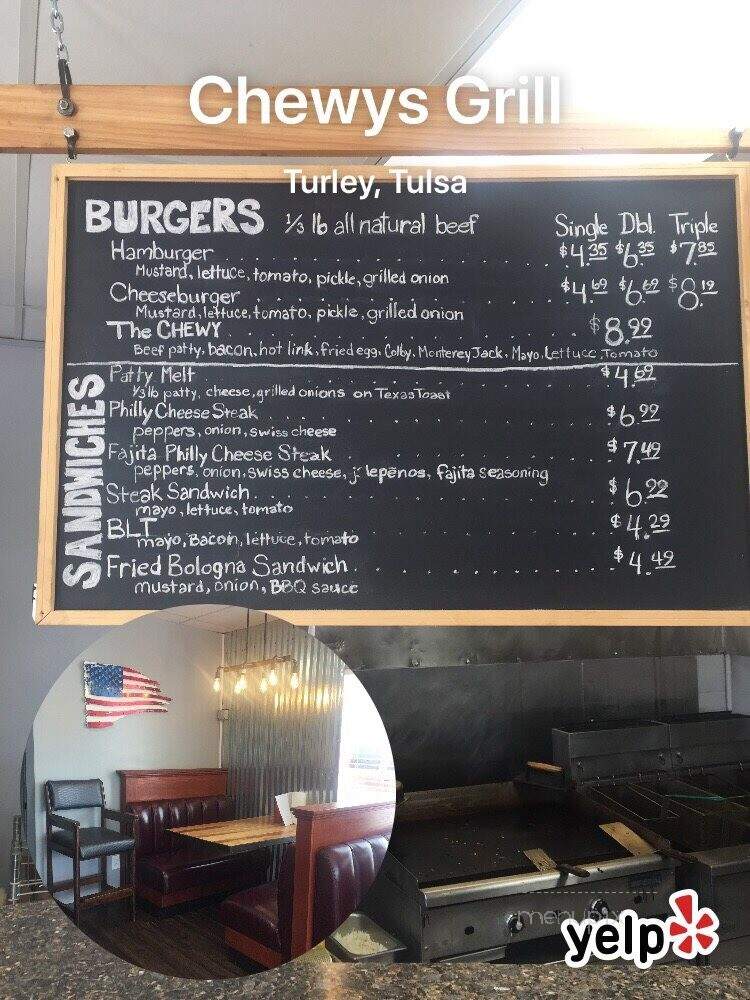 Chewys Grill
Turley, Tulsa
BURGERS 1/3 lb all natural beef Single Dbl. Triple
Hamburger . . . . . . . . . . $4.35 $6.35 $7.85
Mustard, lettuce, tomato, pickle, grilled onion
Cheeseburger . . . . . . . . . . $4.69 $6.69 $8.19
Mustard, lettuce, tomato, pickle, grilled onion
The CHEWY . . . . . . . . . . $8.99
Beef patty, bacon, hot link, fried egg, Colby, Monterey Jack, Mayo, Lettuce, Tomato
SANDWICHES
Patty Melt . . . . . . . . . . $4.69
1/3 lb patty, cheese, grilled onions on Texas Toast
Philly Cheese Steak . . . . . . . . . . $6.99
peppers, onion, swiss cheese
Fajita Philly Cheese Steak . . . . . . . . . . $7.49
peppers, onion, swiss cheese, j lepenos, fajita seasoning
Steak Sandwich . . . . . . . . . . $6.99
mayo, lettuce, tomato
BLT . . . . . . . . . . $4.29
mayo, Bacon, lettuce, tomato
Fried Bologna Sandwich . . . . . . . . . . $4.49
mustard, onion, BBQ sauce
yelp